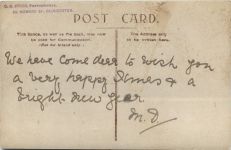 POST CARD.
This Space, as well as the Back, may now
be used for Communication.
(For Inland only.)
The Address only
to be written here.
We have come dear to wish you
a very happy Xmas & a
bright New Year
M. D